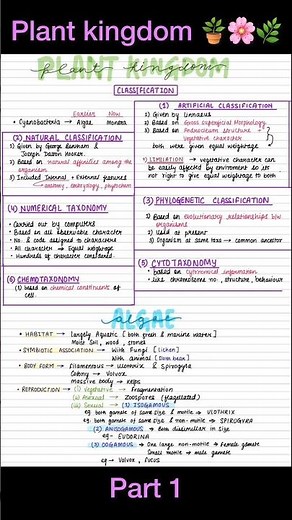 Plant kingdom 🪴🌸🌿
PLANT KINGDOM
plant kingdom
CLASSIFICATION
Earlier Now
• Cyanobacteria → Algae Monera
(1) ARTIFICIAL CLASSIFICATION
1) Given by Linnaeus
2) Based on Gross superficial Morphology
3) Based on Androecium structure + Vegetative character
both were given equal weightage
LIMITATION → vegetative character can
be easily affected by environment so its
not right to give equal weightage to both
(2) NATURAL CLASSIFICATION
1) Given by George Bentham &
Joseph Dalton Hooker.
2) Based on natural affinities among the
organism
3) Included Internal + External features
anatomy, embryology, phytochem
(3) PHYLOGENETIC CLASSIFICATION
1) Based on evolutionary relationships b/w
organisms
2) Used at present
3) Organism at same taxa → common ancestor
(4) NUMERICAL TAXONOMY
• Carried out by computers
• Based on all observable character
• No. & code assigned to characters
• All character → Equal weightage
• Hundreds of character considered.
(5) CYTOTAXONOMY
• Based on cytological information
• Like chromosome no., structure, behaviour
(6) CHEMOTAXONOMY
(1) Based on chemical constituents of
cell.
ALGAE
algae
• HABITAT → largely Aquatic [both fresh & marine water]
Moist Soil, wood, stones
• SYMBIOTIC ASSOCIATION → With Fungi [lichen]
With Animal [Sloth bear]
• BODY FORM → Filamentous → Ulothrix & Spirogyra
Colony → Volvox
Massive body → Kelps
• REPRODUCTION → (i) Vegetative → Fragmentation
(ii) Asexual → Zoospores (flagellated)
(iii) Sexual → (1) ISOGAMOUS
eg both gametes of same size & motile → ULOTHRIX
eg both gamete of same size & non-motile → SPIROGYRA
(2) ANISOGAMOUS → Both dissimilar in size
eg → EUDORINA
(3) OOGAMOUS → One large non-motile → Female gamete
Small motile → male gamete
eg → Volvox, Fucus
Part 1